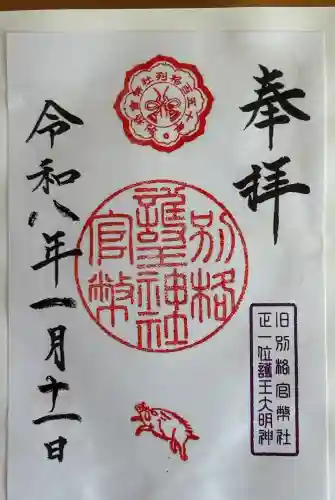 奉拝
旧別格官幣社
正一位護王大明神
別格
護王神社
官幣
令和八年一月十一日